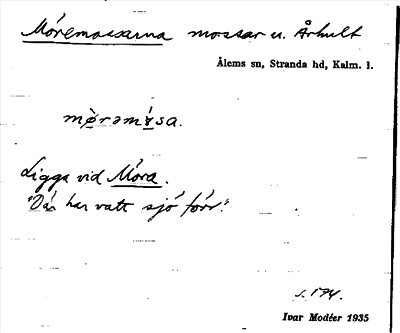 Möremossarna mossar u. Århult
Ålems sn, Stranda hd, Kalm. l.
Ligga vid Möra.
"Där har vatt sjö förr."
s. 194.
Ivar Modéer 1935